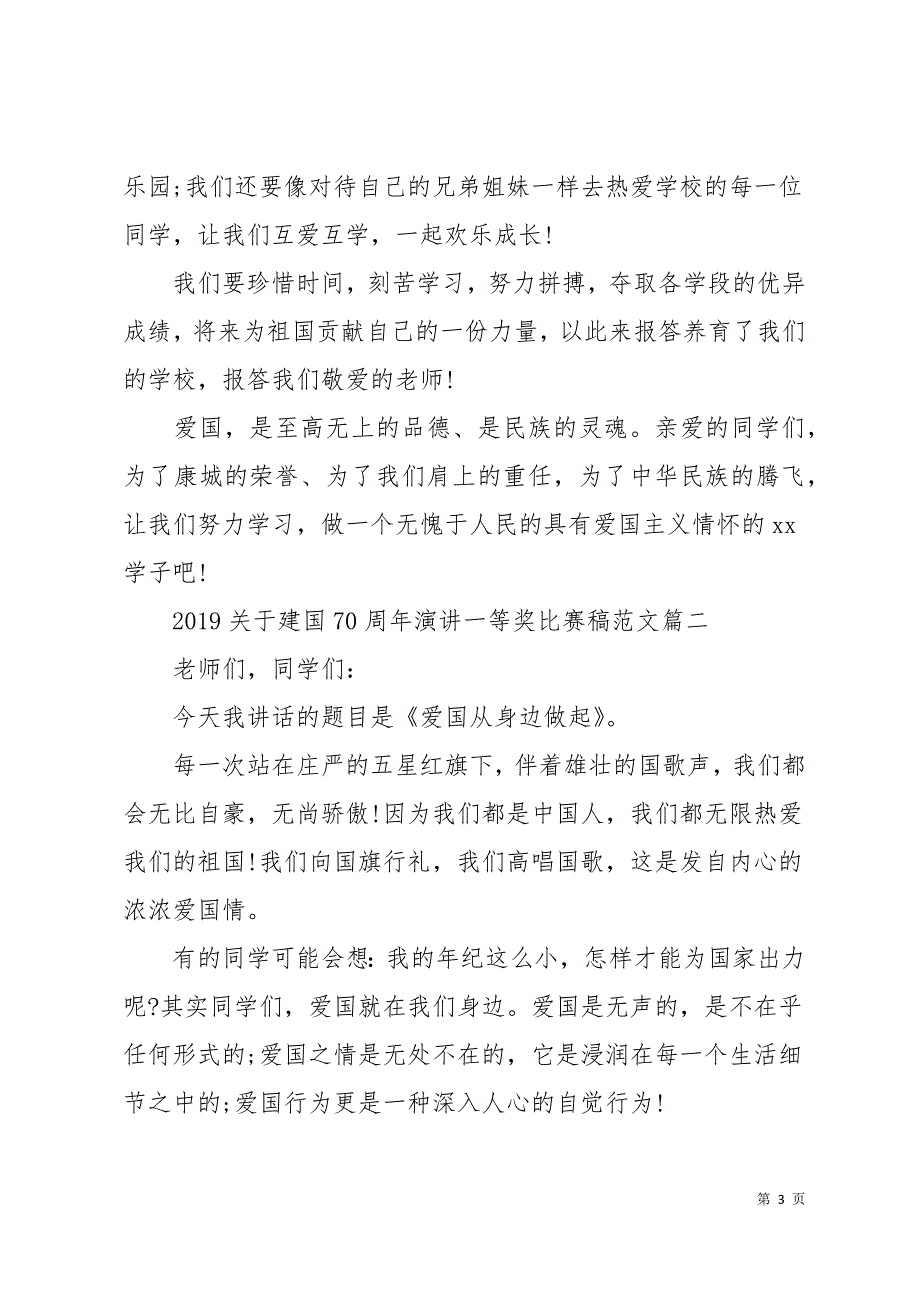 乐园;我们还要像对待自己的兄弟姐妹一样去热爱学校的每一位
同学，让我们互爱互学，一起欢乐成长!
我们要珍惜时间，刻苦学习，努力拼搏，夺取各学段的优异
成绩，将来为祖国贡献自己的一份力量，以此来报答养育了我们
的学校，报答我们敬爱的老师!
爱国，是至高无上的品德、是民族的灵魂。亲爱的同学们，
为了康城的荣誉、为了我们肩上的重任，为了中华民族的腾飞，
让我们努力学习，做一个无愧于人民的具有爱国主义情怀的 xx
学子吧!
2019 关于建国 70 周年演讲一等奖比赛稿范文篇二
老师们，同学们：
今天我讲话的题目是《爱国从身边做起》。
每一次站在庄严的五星红旗下，伴着雄壮的国歌声，我们都
会无比自豪，无尚骄傲!因为我们都是中国人，我们都无限热爱
我们的祖国!我们向国旗行礼，我们高唱国歌，这是发自内心的
浓浓爱国情。
有的同学可能会想：我的年纪这么小，怎样才能为国家出力
呢?其实同学们，爱国就在我们身边。爱国是无声的，是不在乎
任何形式的;爱国之情是无处不在的，它是浸润在每一个生活细
节之中的;爱国行为更是一种深入人心的自觉行为!
第 3 页